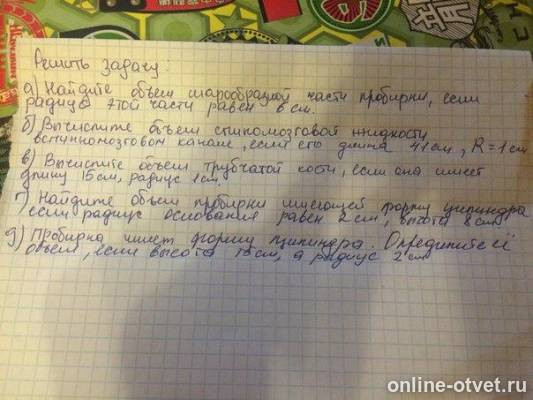 Решить задачу:
а) Найдите объем шарообразной части пробирки, если
радиус этой части равен 6 см.
б) Вычислите объем спиномозговой жидкости
вспинномозговом канале, если его длина 41 см, R = 1 см
в) Вычислите объем трубчатой кости, если она имеет
длину 15 см, радиус 1 см.
г) Найдите объем пробирки имеющей форму цилиндра
если радиус основания равен 2 см, высота 8 см
д) Пробирка имеет форму цилиндра. Определите её
объем, если высота см, а радиус 2 см
online-otvet.ru